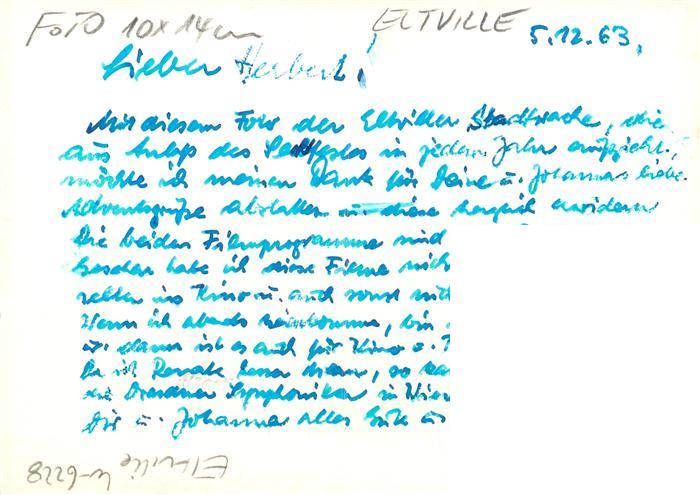 FOTO 10x14cm
ELTVILLE
5.12.63,
Lieber Herbert!
Mit diesem Foto der Eltviller Stadtwache, die
aus Anlaß des Sektfestes in jedem Jahr aufzieht,
möchte ich meinen Dank für Deine u. Johannas liebe
Adventsgrüße abstatten u. diese herzlich erwidern
Die beiden Filmprogramme sind
habe ich diese Filme nich
selten ins Kino u. auch sonst nich
Wenn ich abends heimkomme, bin
u. dann ist es auch für Kino u. T
Da ist Renate besser dran, so
die Dresdner Symphoniker in Wies
Dir u. Johanna alles Gute u
Eltville W-6228